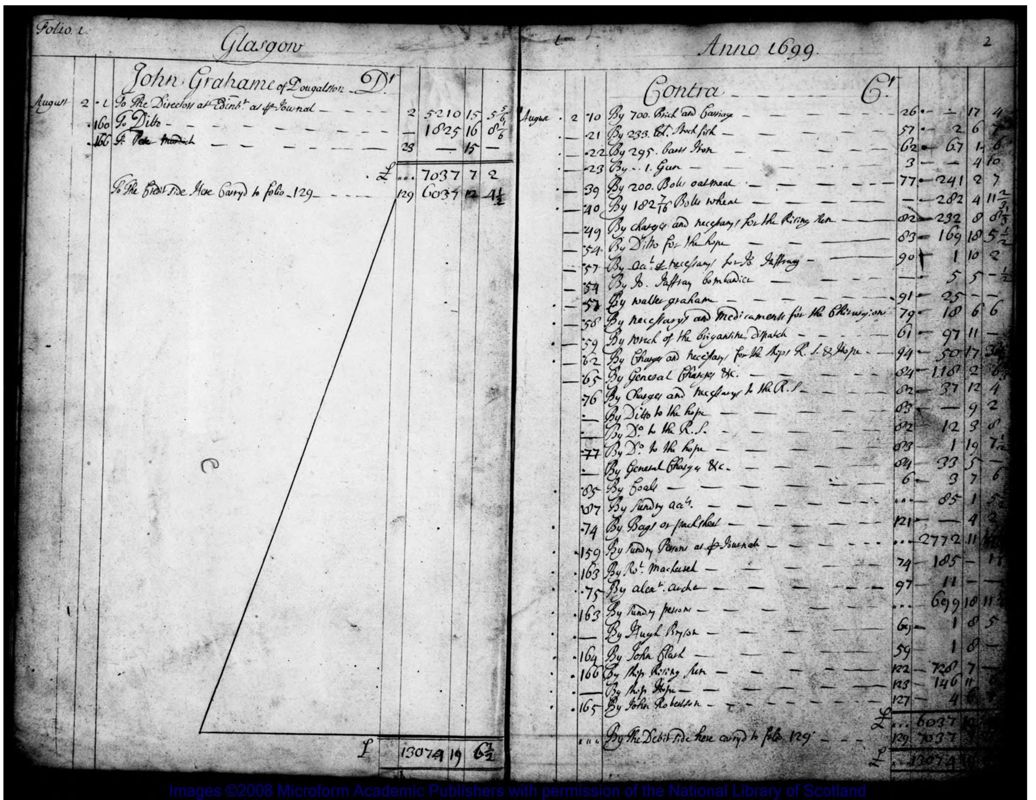 Folio 1.
Glasgow
John Grahame of Dougalston Dr
August 2 · 1 To The Directors at Edinbr as pr Journal — 2 5210 15 5 5/6
160 To Ditto — — 1825 16 8 1/6
166 To 23 — 15 —
... 7037 7 2
To The Credit side Here Carryd to folio 129 — 129 6037 12 4 1/2
£ 13074 19 6 1/2
1 Anno 1699. 2
Contra Cr
August 2 10 By 700 Brick and Carriage — 26 — 17 4
21 By 233 Stock fish — 57 2 6
22 By 295 barrs Iron — 62 67 1 6
23 By 1 Gun — 3 — 4 10
39 By 200 Bolls oatmeal — 77 241 2 7
40 By 182 7/16 Bolls wheat — — 282 4 11
49 By charges and necessarys for the Rising Sun — 82 232 8 8
54 By Ditto for the hope — 83 169 18 5 1/2
57 By acct of necessarys for Jo Jaffray — 90 1 10 2
54 By Jo. Jaffray bombardier — 5 5 – 1/2
57 By walter graham — 91 25 — —
58 By necessarys and Medicaments for the Chirurgions 79 18 6 6
59 By wreck of the brigantine dispatch — 61 97 11 —
62 By Charges and necessarys for the ships R. S. & Hope 94 50 17
65 By General Charges &c. — 84 118 2
76 By Charges and necessarys to the R.S. — 82 37 12 4
— By Ditto to the hope — 83 — 9 2
— By Do to the R.S. — 82 12 3 8
77 By Do to the hope — 83 1 19 7
— By General Charges &c. — 84 33 5 —
85 By Coals — 6 3 7 6
87 By Sundry accts. — ... 85 1 5
74 By Bags or packsheet — 121 — 4
159 By Sundry Persons as pr Journal — ... 2772 11
163 By Rot. — 74 185 —
75 By alexr. — 97 11 —
163 By Sundry persons — ... 699 18 11
— By Hugh Bryson — 69 1 8 5
164 By John Clark — 59 1 8 —
166 By ship Rising Sun — 122 728 7 —
— By ship Hope — 123 146 11
165 By John Robertson — 127 4 6
... 6037 12
By the Debit side here carryd to folio 129 — 129 7037 7
13074 19
Images ©2008 Microform Academic Publishers with permission of the National Library of Scotland